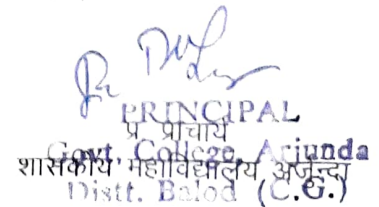 PRINCIPAL
प्र. प्राचार्य
Govt. College, Arjunda
शासकीय महाविद्यालय, अर्जुन्दा
Distt. Balod (C.G.)